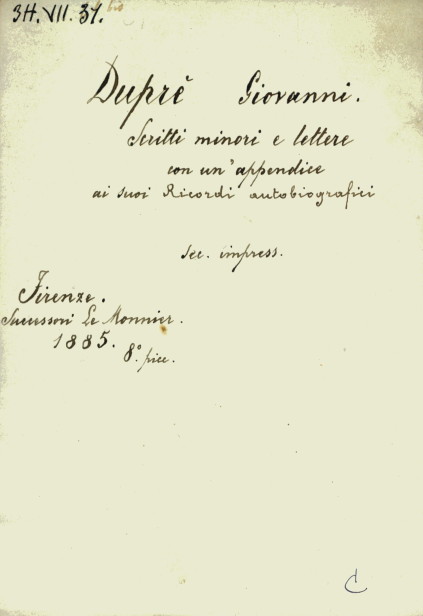 34.VII.37.bis
Duprè Giovanni.
Scritti minori e lettere
con un'appendice
ai suoi Ricordi autobiografici
sec. impress.
Firenze.
Successori Le Monnier.
1885.
8.° picc.
C